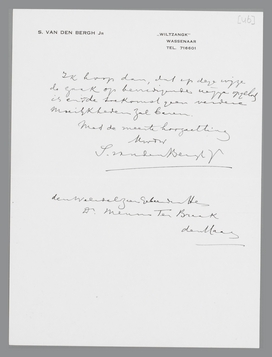 [46]
S. VAN DEN BERGH Jr
„WILTZANGK"
WASSENAAR
TEL. 71850
Ik hoop dan, dat op deze wijze
de zaak op bevredigende wijze
is en de toekomst geen verdere
moeilijkheden zal baren
Met de meeste hoogachting
S. van den Bergh Jr
den Weledelgeb. Heer
Dr. Menno Ter Braak
den Haag